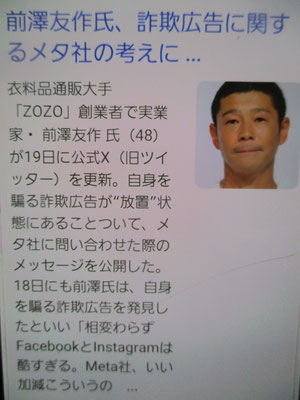 前澤友作氏、詐欺広告に関す
るメタ社の考えに ...
衣料品通販大手
「ZOZO」創業者で実業
家・ 前澤友作 氏（48）
が19日に公式X（旧ツイ
ッター）を更新。自身を
騙る詐欺広告が“放置”状
態にあることついて、メ
タ社に問い合わせた際の
メッセージを公開した。
18日にも前澤氏は、自身
を騙る詐欺広告を発見し
たといい「相変わらず
FacebookとInstagramは
酷すぎる。Meta社、いい
加減こういうの ...